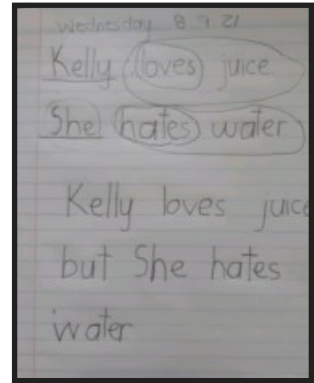 Wednesday 8.9.21
Kelly loves juice.
She hates water
Kelly loves juice
but She hates
water